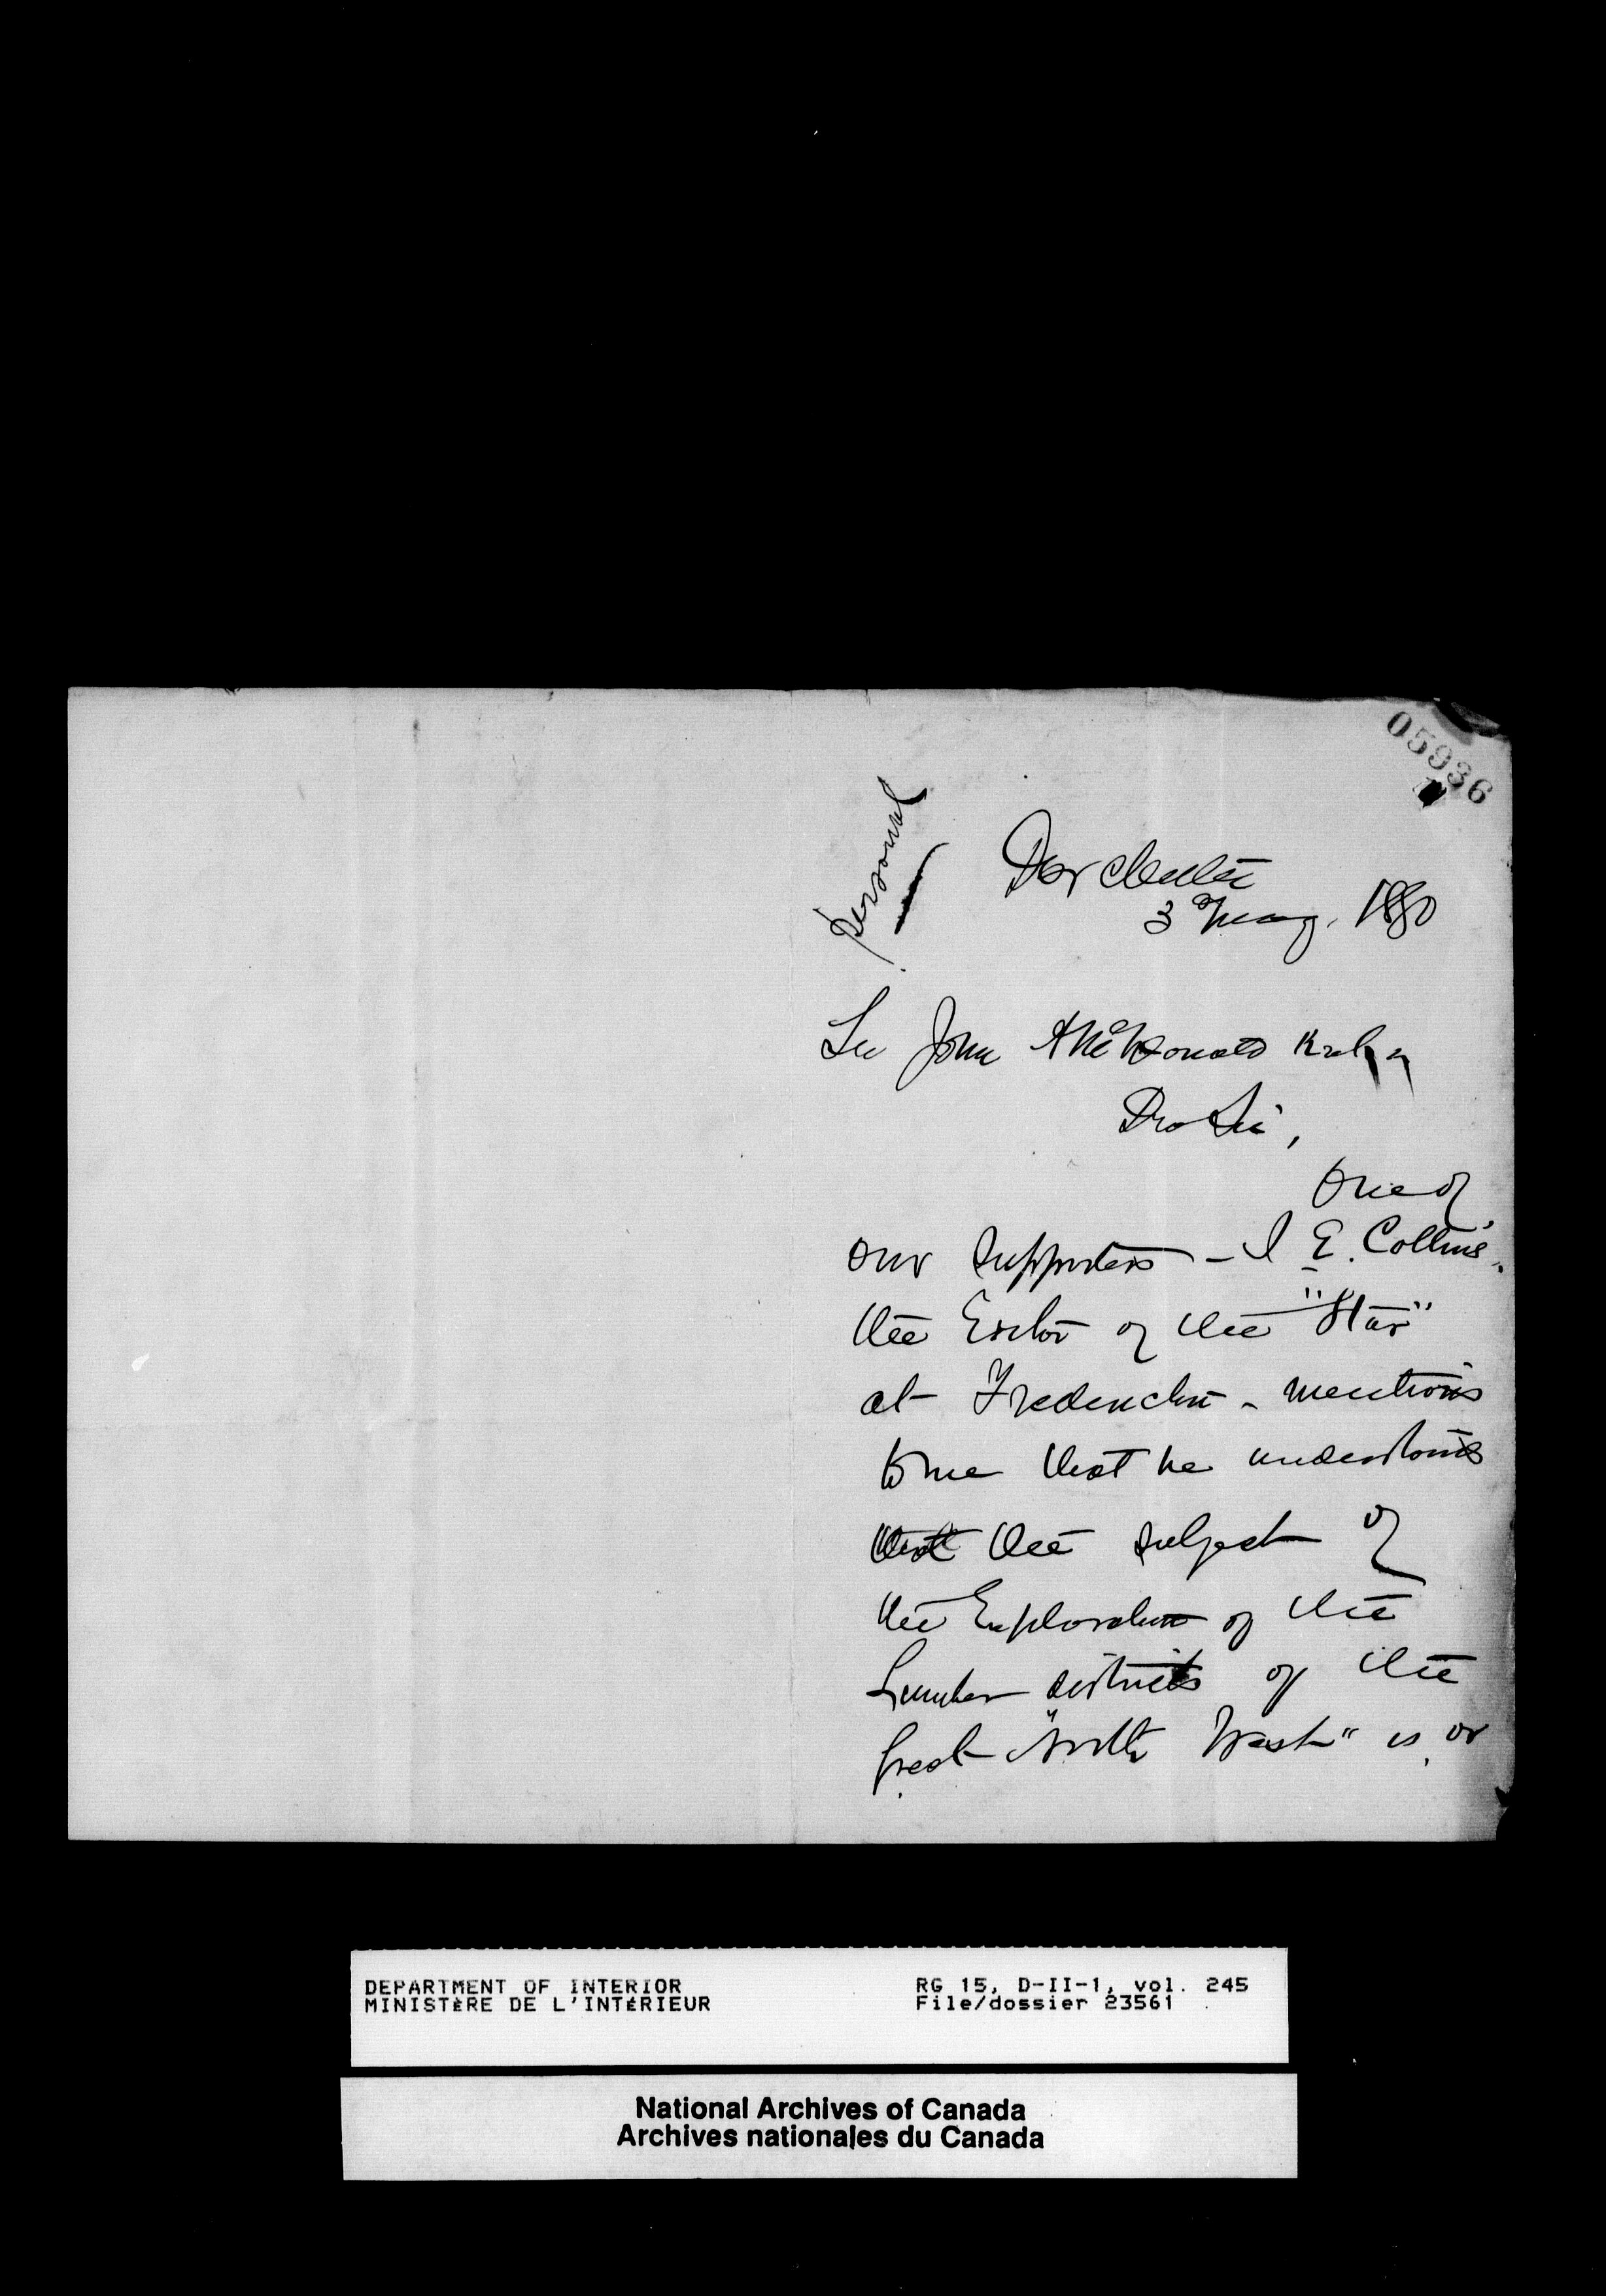 05936
personal
Dorchester
3 May. 1880
Sir John A McDonald
Dr Sir,
One of
our supporters - J E. Collins,
the Editor of the "Star"
at Fredericton - mentions
to me that he understands
that the subject of
the Exploration of the
Lumber districts of the
great "North West" is, or
DEPARTMENT OF INTERIOR
MINISTÈRE DE L'INTÉRIEUR
RG 15, D-II-1, vol. 245
File/dossier 23561
National Archives of Canada
Archives nationales du Canada